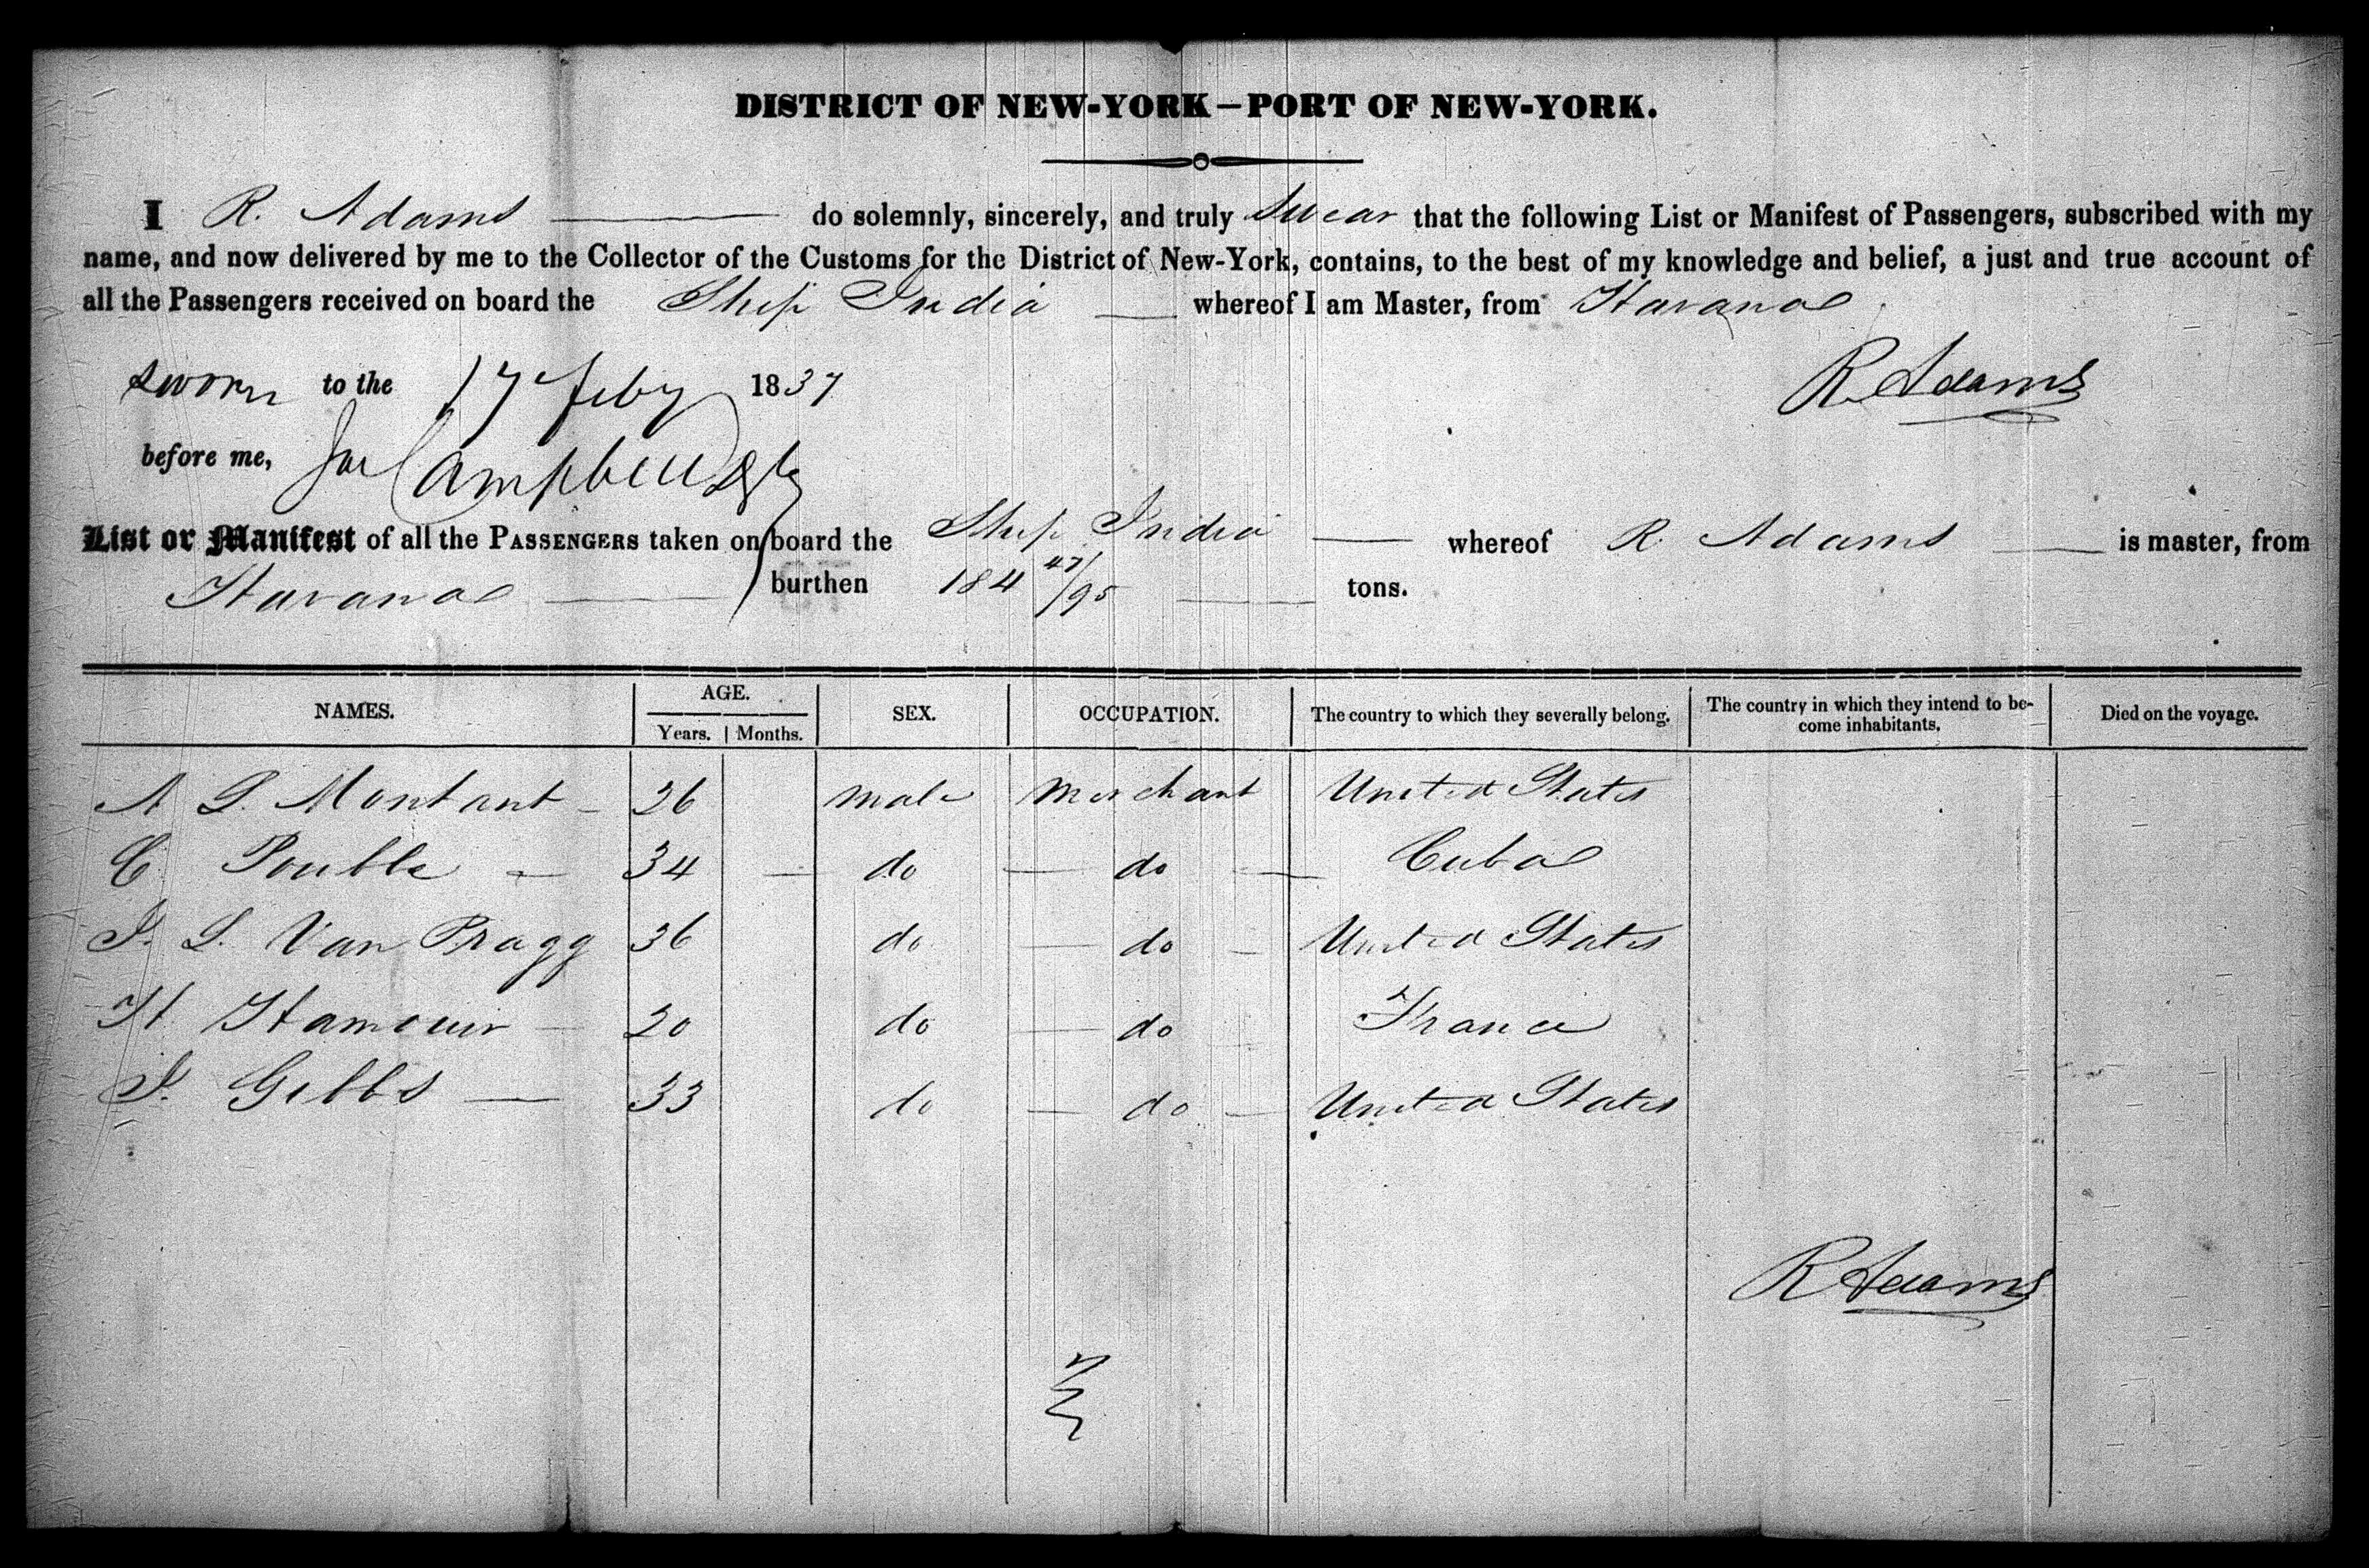 DISTRICT OF NEW-YORK—PORT OF NEW-YORK.
I R. Adams do solemnly, sincerely, and truly Swear that the following List or Manifest of Passengers, subscribed with my
name, and now delivered by me to the Collector of the Customs for the District of New-York, contains, to the best of my knowledge and belief, a just and true account of
all the Passengers received on board the Ship India whereof I am Master, from Havana
sworn to the 17 Feby 1837
R Adams
before me, Campbell
List or Manifest of all the PASSENGERS taken on board the Ship India whereof R. Adams is master, from
Havana burthen 184 47/95 tons.
NAMES. AGE. SEX. OCCUPATION. The country to which they severally belong. The country in which they intend to be- Died on the voyage.
Years. Months. come inhabitants.
A G. Montant 26 male Merchant United States
C Pouble 34 do do Cuba
L. Van Pragg 36 do do United States
H 20 do do France
Gibbs 33 do do United States
R Adams